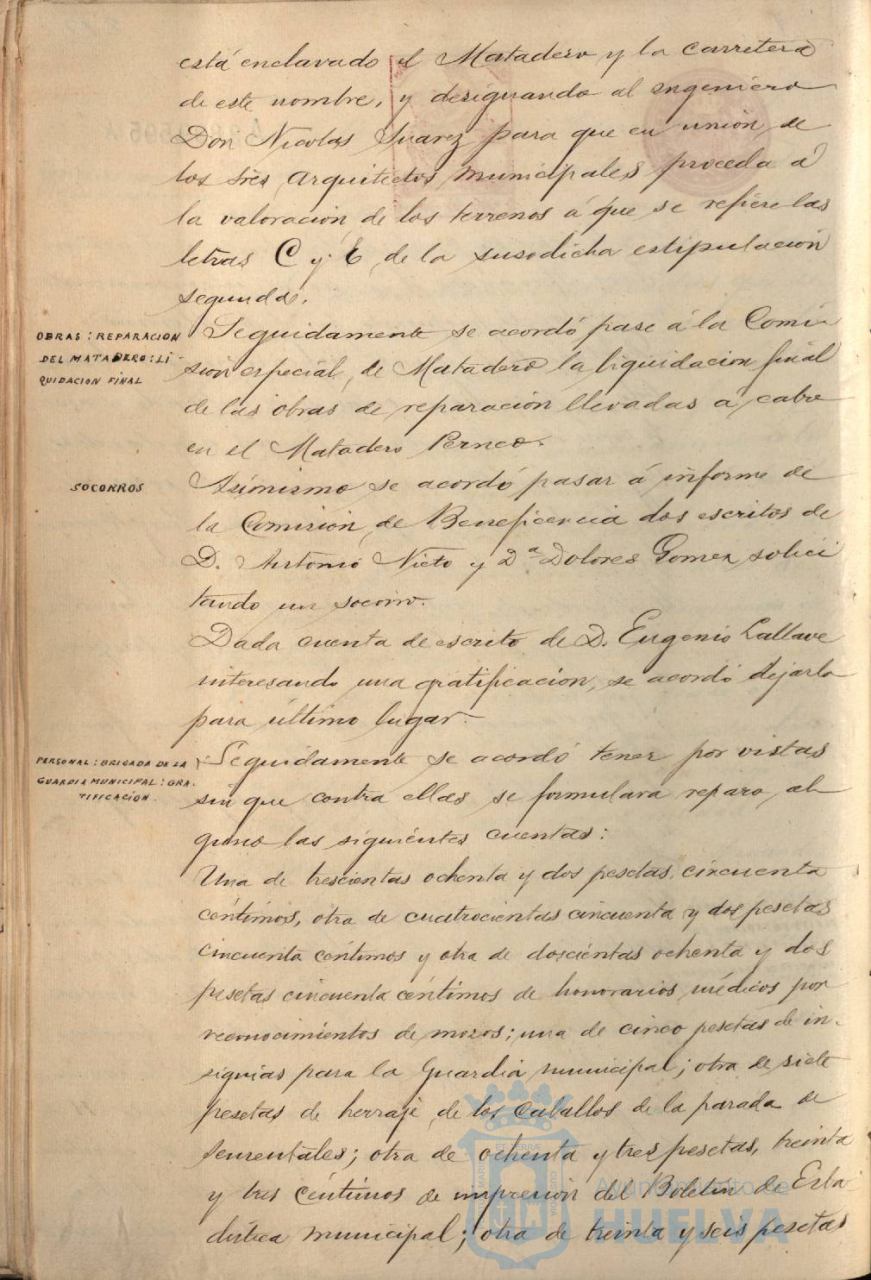 está enclavado el Matadero y la carretera
de este nombre, y designando al ingeniero
Don Nicolas Suarez para que en unión de
los tres Arquitectos Municipales proceda á
la valoración de los terrenos á que se refiere las
letras C y E de la susodicha estipulación
segunda.
OBRAS: REPARACION
DEL MATADERO: LI-
QUIDACION FINAL
Seguidamente se acordó pase á la Comi-
sión especial de Matadero la liquidacion final
de las obras de reparación llevadas á cabo
en el Matadero
SOCORROS
Asimismo se acordó pasar á informe de
la Comisión de Beneficencia dos escritos de
D. Antonio Nieto y Dª Dolores Gomez solici
tando un socorro.
Dada cuenta de escrito de D. Eugenio Lallave
interesando una gratificación, se acordó dejarlo
para último lugar.
PERSONAL: BRIGADA DE LA
GUARDIA MUNICIPAL: GRA-
TIFICACIÓN.
Seguidamente se acordó tener por vistas
sin que contra ellas se formulara reparo al
guno las siguientes cuentas:
Una de trescientas ochenta y dos pesetas cincuenta
céntimos, otra de cuatrocientas cincuenta y dos pesetas
cincuenta céntimos y otra de doscientas ochenta y dos
pesetas cincuenta céntimos de honorarios médicos por
reconocimientos de mozos; una de cinco pesetas de in-
signias para la Guardia municipal; otra de siete
pesetas de herraje de los caballos de la parada de
Sementales; otra de ochenta y tres pesetas, treinta
y tres céntimos de impresión del Boletin de Esta
dística municipal; otra de treinta y seis pesetas
Ayuntamiento de
HUELVA